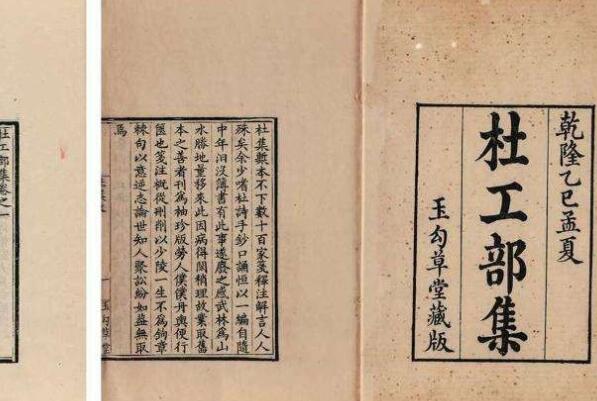 乾隆乙巳孟夏
杜工部集
玉勾草堂藏版
杜集數本不下數十百家箋釋注解言人人
殊矣余少耆杜詩手鈔口誦恒以一編自隨
中年汩沒簿書有此事遂廢之感武林為山
水勝地量移來此因病得閒稍理故業取舊
本之善者刊為袖珍版勞人僕僕舟輿便行
篋也箋注概從刪削以少陵一生不為鉤章
棘句以意逆志論世知人聚訟紛如蓋無取
焉
杜工部集卷之一